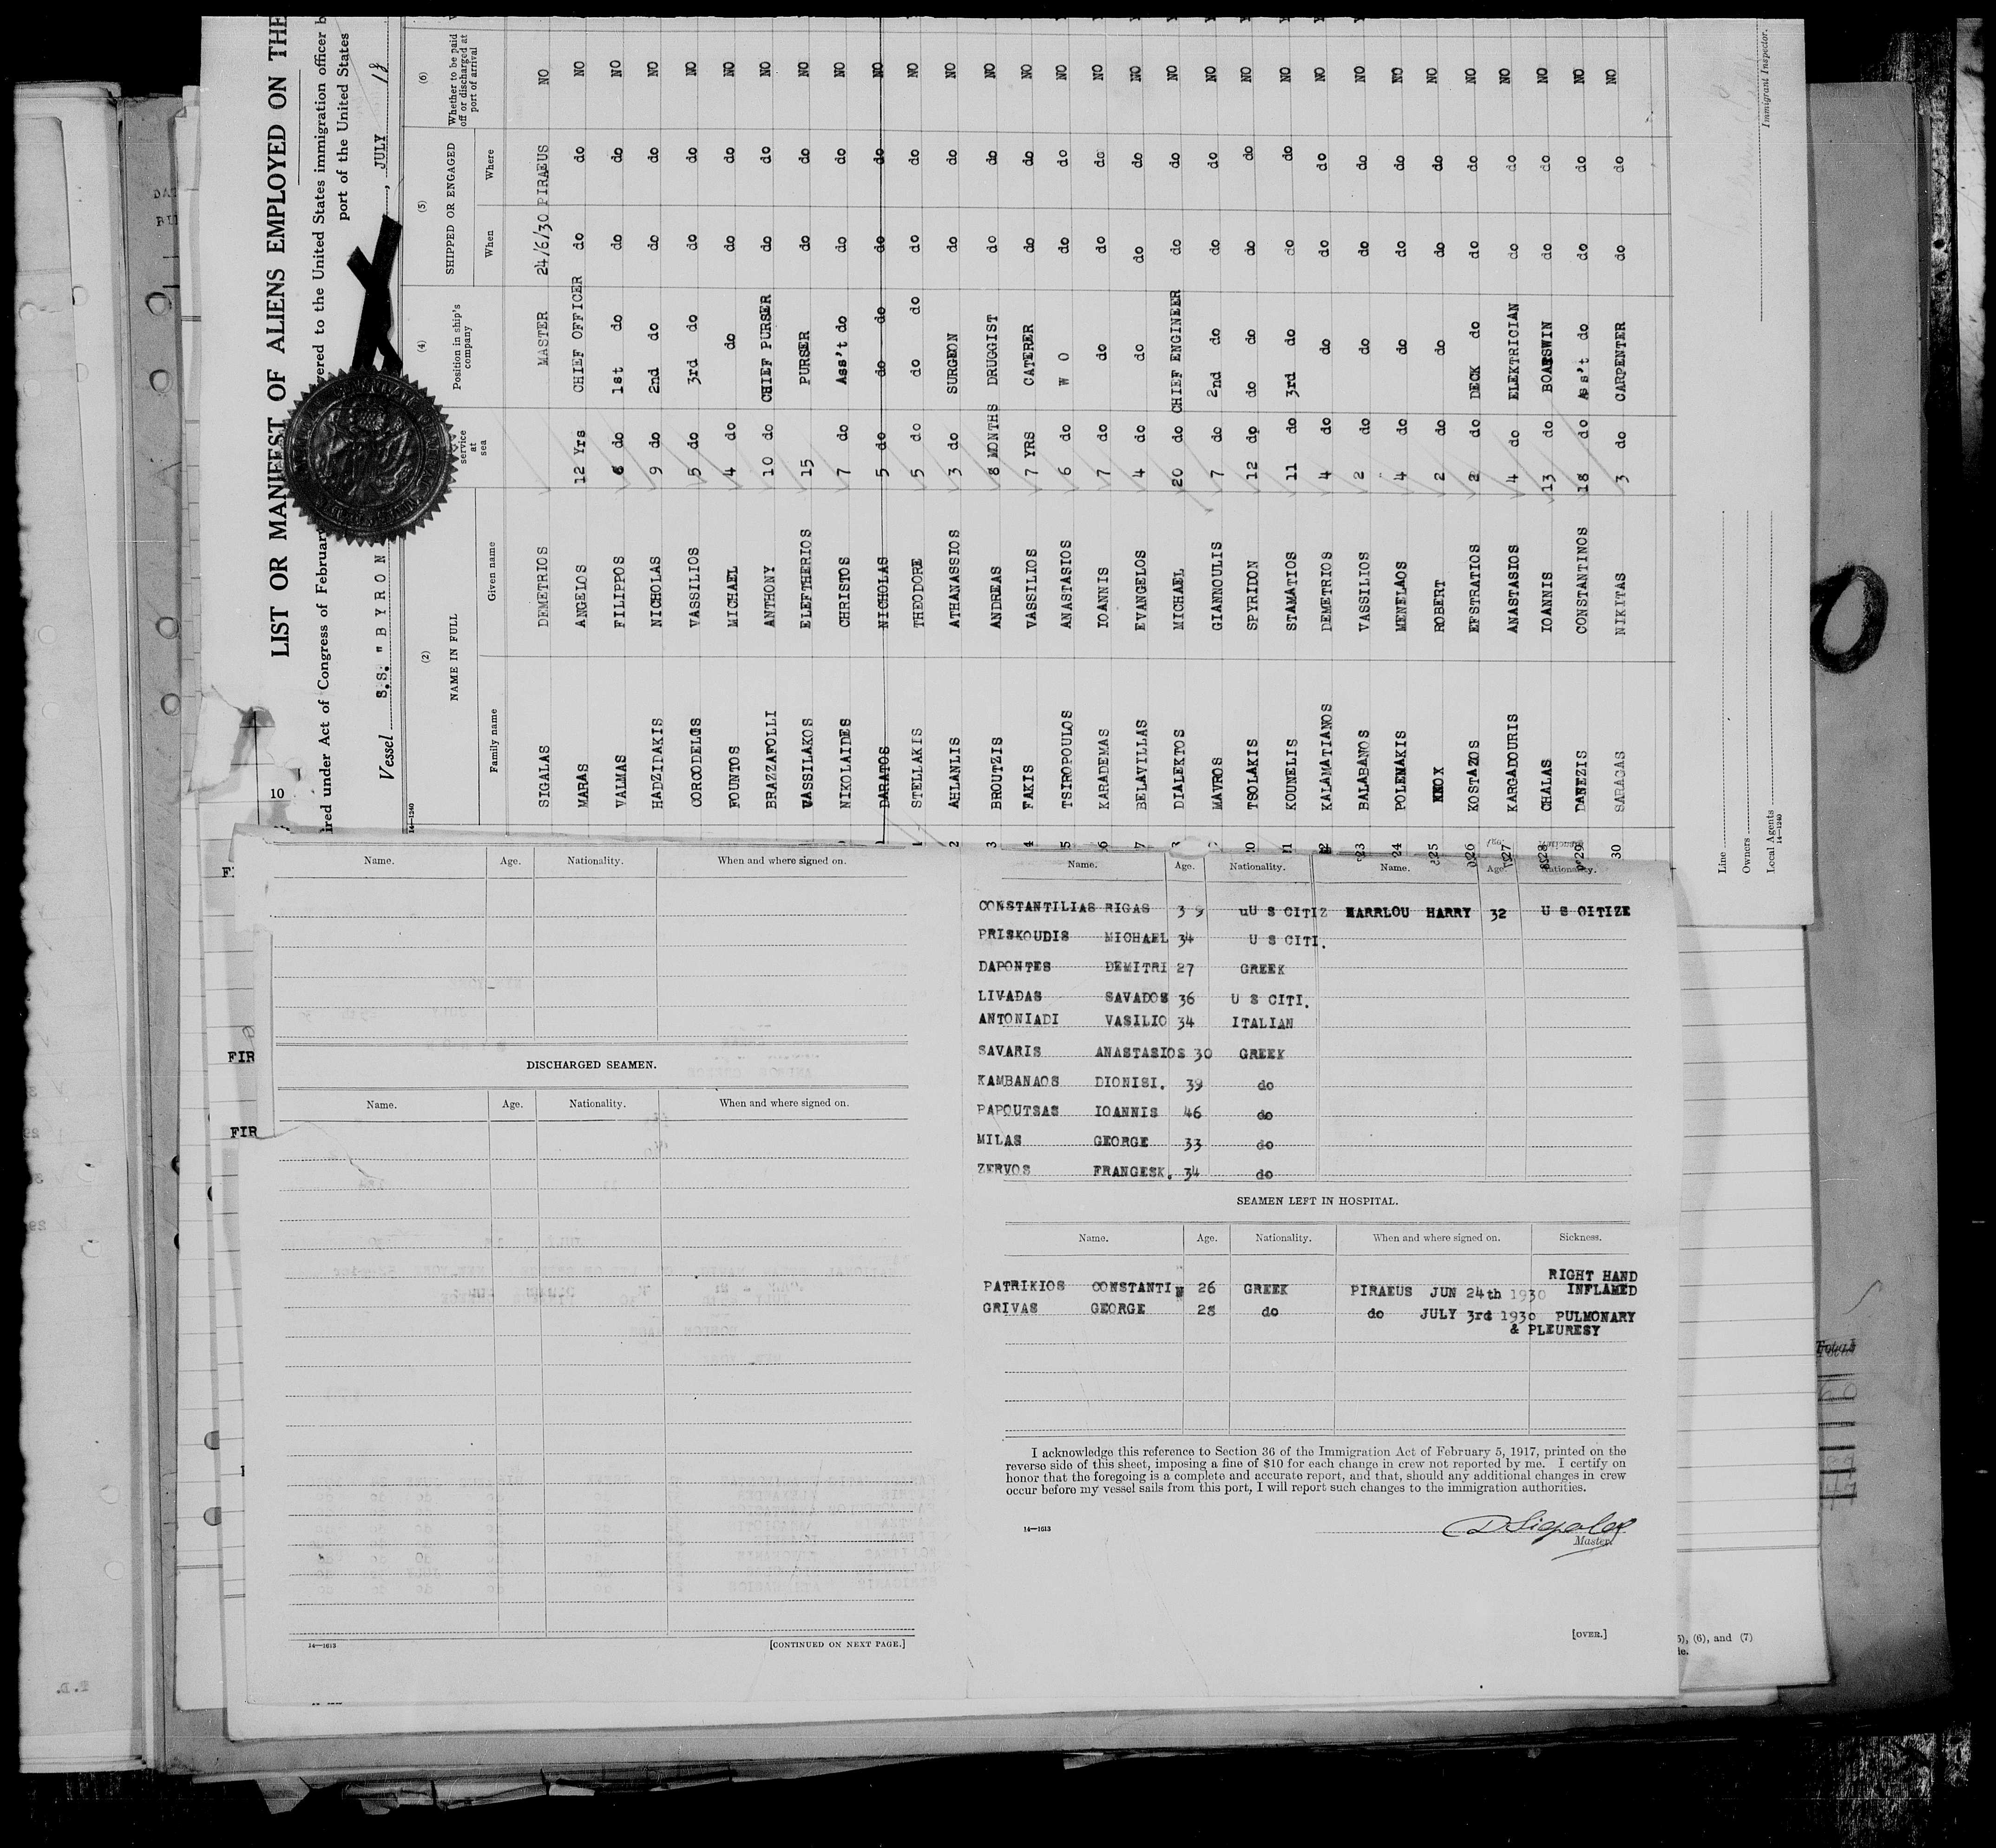 LIST OR MANIFEST OF ALIENS EMPLOYED ON THE
ired under Act of Congress of February vered to the United States immigration officer b
port of the United States
Vessel S.S. "BYRON , JULY 18
(2) (4) (5) (6)
NAME IN FULL service at sea Position in ship's company SHIPPED OR ENGAGED Whether to be paid off or discharged at port of arrival
Family name Given name When Where
SIGALAS DEMETRIOS MASTER 24/6/30 PIRAEUS NO
MARAS ANGELOS 12 Yrs CHIEF OFFICER do do NO
VALMAS FILIPPOS 6 do 1st do do do NO
HADZIDAKIS NICHOLAS 9 do 2nd do do do NO
CORCODELOS VASSILIOS 5 do 3rd do do do NO
FOUNTOS MICHAEL 4 do do do do NO
BRAZZAFOLLI ANTHONY 10 do CHIEF PURSER do do NO
VASSILAKOS ELEFTHERIOS 15 PURSER do do NO
NIKOLAIDES CHRISTOS 7 do Ass't do do do NO
DARATOS NICHOLAS 5 do do do do do NO
STELLAKIS THEODORE 5 do do do do do NO
AHLANLIS ATHANASSIOS 3 do SURGEON do do NO
BROUTZIS ANDREAS 8 MONTHS DRUGGIST do do NO
FAKIS VASSILIOS 7 YRS CATERER do do NO
TSIROPOULOS ANASTASIOS 6 do W O do do NO
KARADEMAS IOANNIS 7 do do do do NO
BELAVILLAS EVANGELOS 4 do do do do NO
DIALEKTOS MICHAEL 20 do CHIEF ENGINEER do do NO
MAVROS GIANNOULIS 7 do 2nd do do do NO
TSOLAKIS SPYRIDON 12 do do do do do NO
KOUNELIS STAMATIOS 11 do 3rd do do do NO
KALAMATIANOS DEMETRIOS 4 do do do do NO
23 BALABANOS VASSILIOS 2 do do do do NO
24 POLEMAKIS MENELAOS 4 do do do do NO
25 KNOX ROBERT 2 do do do do NO
26 KOSTAZOS EFSTRATIOS 2 do DECK do do do NO
27 KARGADOURIS ANASTASIOS 4 do ELEKTRICIAN do do NO
28 CHALAS IOANNIS 13 do BOATSWIN do do NO
29 DANEZIS CONSTANTINOS 18 do Ass't do do do NO
30 SARAGAS NIKITAS 3 do CARPENTER do do NO
Line
Owners
Local Agents
14—1240
Immigrant Inspector.
10
FIR
FIR
Name. Age. Nationality. When and where signed on.
DISCHARGED SEAMEN.
Name. Age. Nationality. When and where signed on.
14—1613 [CONTINUED ON NEXT PAGE.]
Name. Age. Nationality. Name. Age. Nationality.
CONSTANTILIAS RIGAS 39 uU S CITIZ MARRLOU HARRY 32 U S CITIZE
PRISKOUDIS MICHAEL 34 U S CITI.
DAPONTES DEMITRI 27 GREEK
LIVADAS SAVADOS 36 U S CITI.
ANTONIADI VASILIO 34 ITALIAN
SAVARIS ANASTASIOS 30 GREEK
KAMBANAOS DIONISI. 39 do
PAPOUTSAS IOANNIS 46 do
MILAS GEORGE 33 do
ZERVOS FRANGESK. 34 do
SEAMEN LEFT IN HOSPITAL.
Name. Age. Nationality. When and where signed on. Sickness.
PATRIKIOS CONSTANTIN 26 GREEK PIRAEUS JUN 24th 1930 RIGHT HAND INFLAMED
GRIVAS GEORGE 28 do do JULY 3rd 1930 PULMONARY
& PLEURESY
I acknowledge this reference to Section 36 of the Immigration Act of February 5, 1917, printed on the
reverse side of this sheet, imposing a fine of $10 for each change in crew not reported by me. I certify on
honor that the foregoing is a complete and accurate report, and that, should any additional changes in crew
occur before my vessel sails from this port, I will report such changes to the immigration authorities.
14—1613
D Sigalas
Master.
[OVER.]
5), (6), and (7)